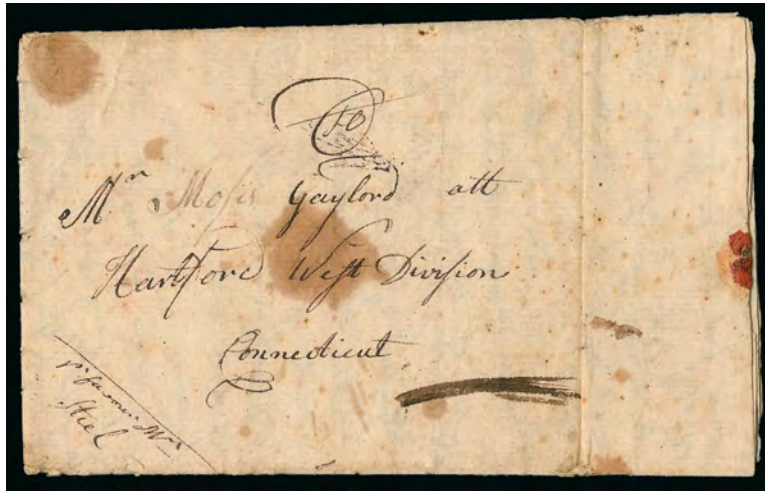 To
Mr Moses Gaylord att
Hartford West Division
Connecticut
Mr
Steel